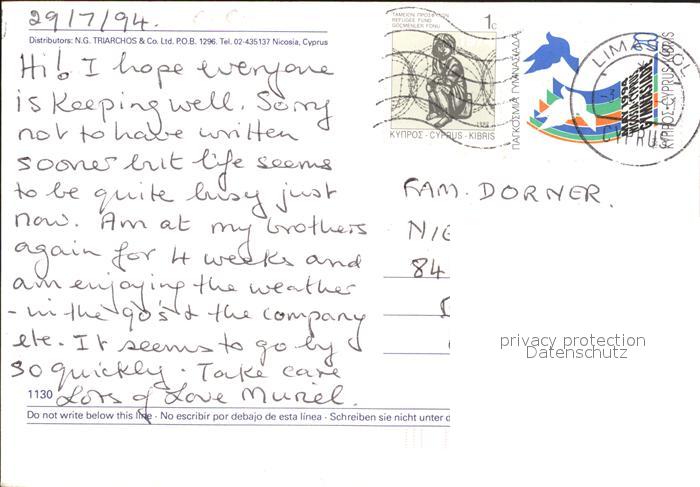 29/7/94.
Distributors: N.G. TRIARCHOS & Co. Ltd. P.O.B. 1296. Tel. 02-435137 Nicosia, Cyprus
Hi! I hope everyone
is keeping well. Sorry
not to have written
sooner but life seems
to be quite busy just
now. Am at my brothers
again for 4 weeks and
am enjoying the weather
- in the 90's & the company
etc. It seems to go by
so quickly. Take care
1130 Lots of Love Muriel.
Do not write below this line · No escribir por debajo de esta línea · Schreiben sie nicht unter d
ΤΑΜΕΙΟΝ ΠΡΟΣΦΥΓΩΝ
REFUGEE FUND
GÖÇMENLER FONU
1c
ΚΥΠΡΟΣ - CYPRUS - KIBRIS
ΠΑΓΚΟΣΜΙΑ ΓΥΜΝΑΣΙΑΔΑ
ΚΥΠΡΟΣ-CYPRUS-KIBRIS
LIMASSOL
CYPRUS
FAM. DORNER.
NIE
84
privacy protection
Datenschutz